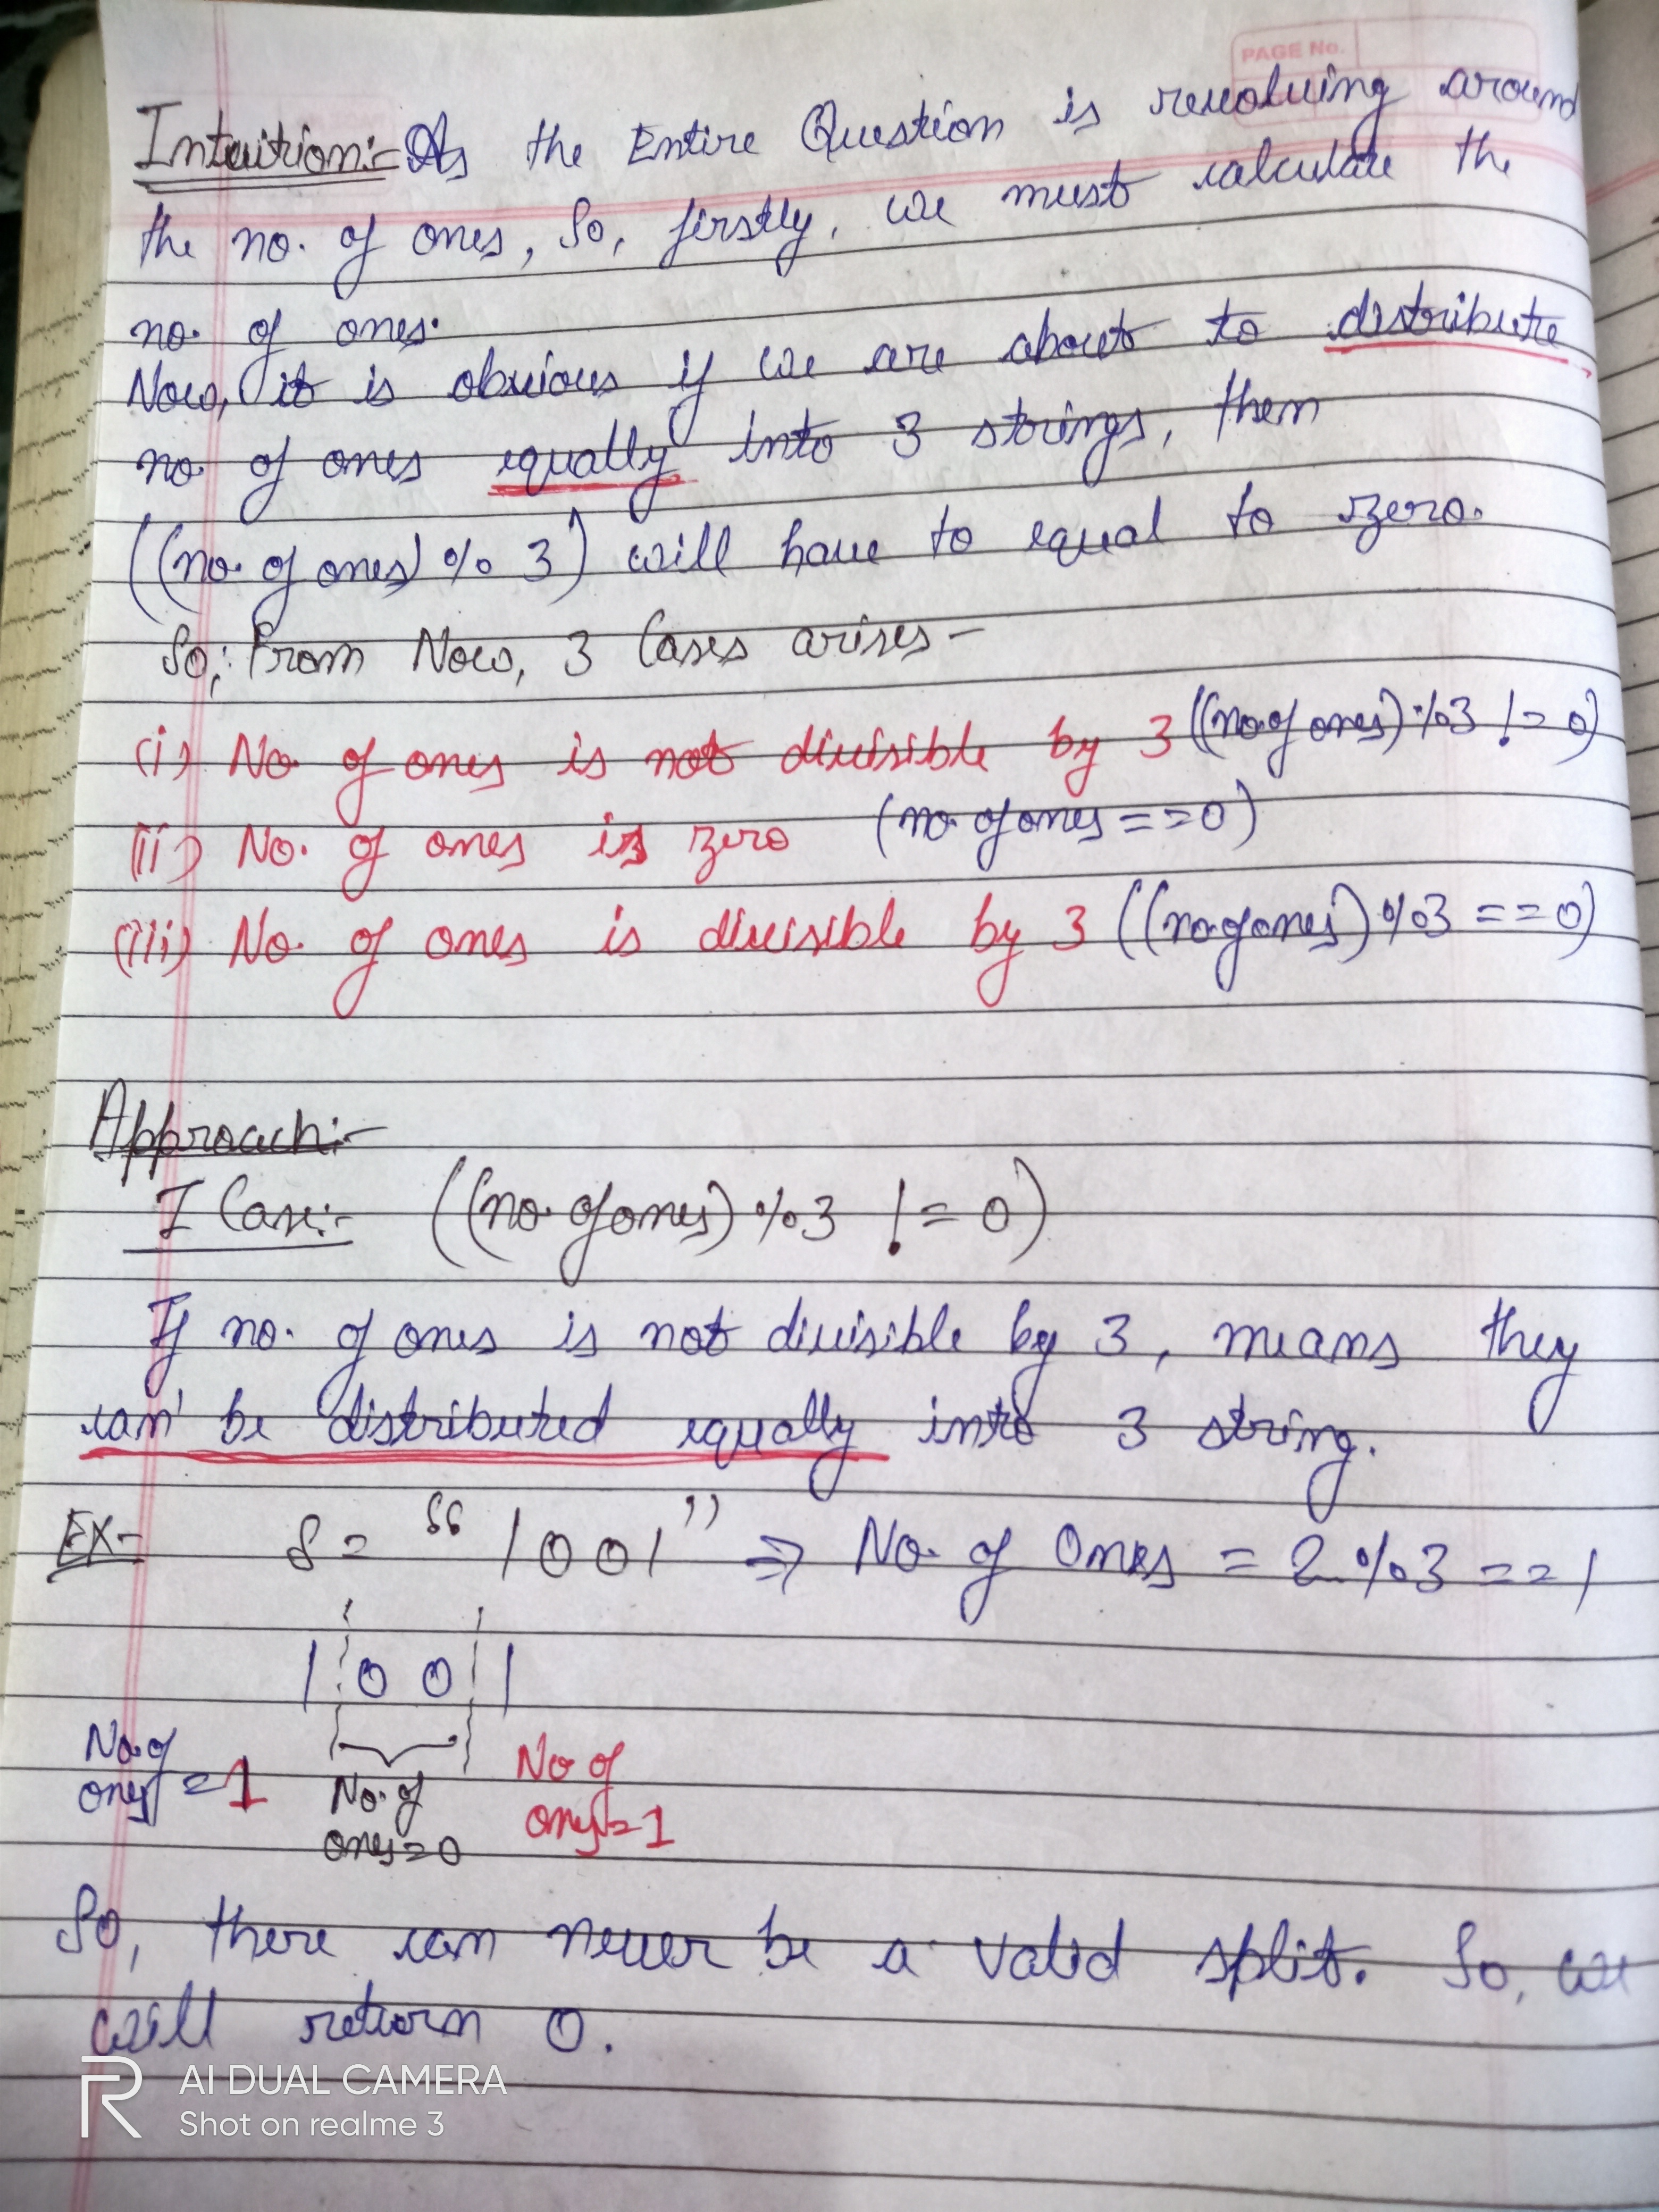 PAGE No.
Intuition:- As the Entire Question is revolving around
the no. of ones, So, firstly, we must calculate the
no. of ones.
Now, it is obvious if we are about to distribute
no. of ones equally into 3 strings, then
((no. of ones) % 3) will have to equal to zero.
So, From Now, 3 Cases arises -
(i) No. of ones is not divisible by 3 ((no of ones) % 3 != 0)
(ii) No. of ones is zero (no. of ones == 0)
(iii) No. of ones is divisible by 3 ((no of ones) % 3 == 0)
Approach:-
I Case:- ((no. of ones) % 3 != 0)
If no. of ones is not divisible by 3, means they
can' be distributed equally into 3 string.
EX- S = "1001" ⇒ No. of Ones = 2 % 3 == 1
1 0 0 1
No. of ones = 1 No. of ones = 0 No of ones = 1
So, there can never be a valid split. So, we
will return 0.
R AI DUAL CAMERA
Shot on realme 3